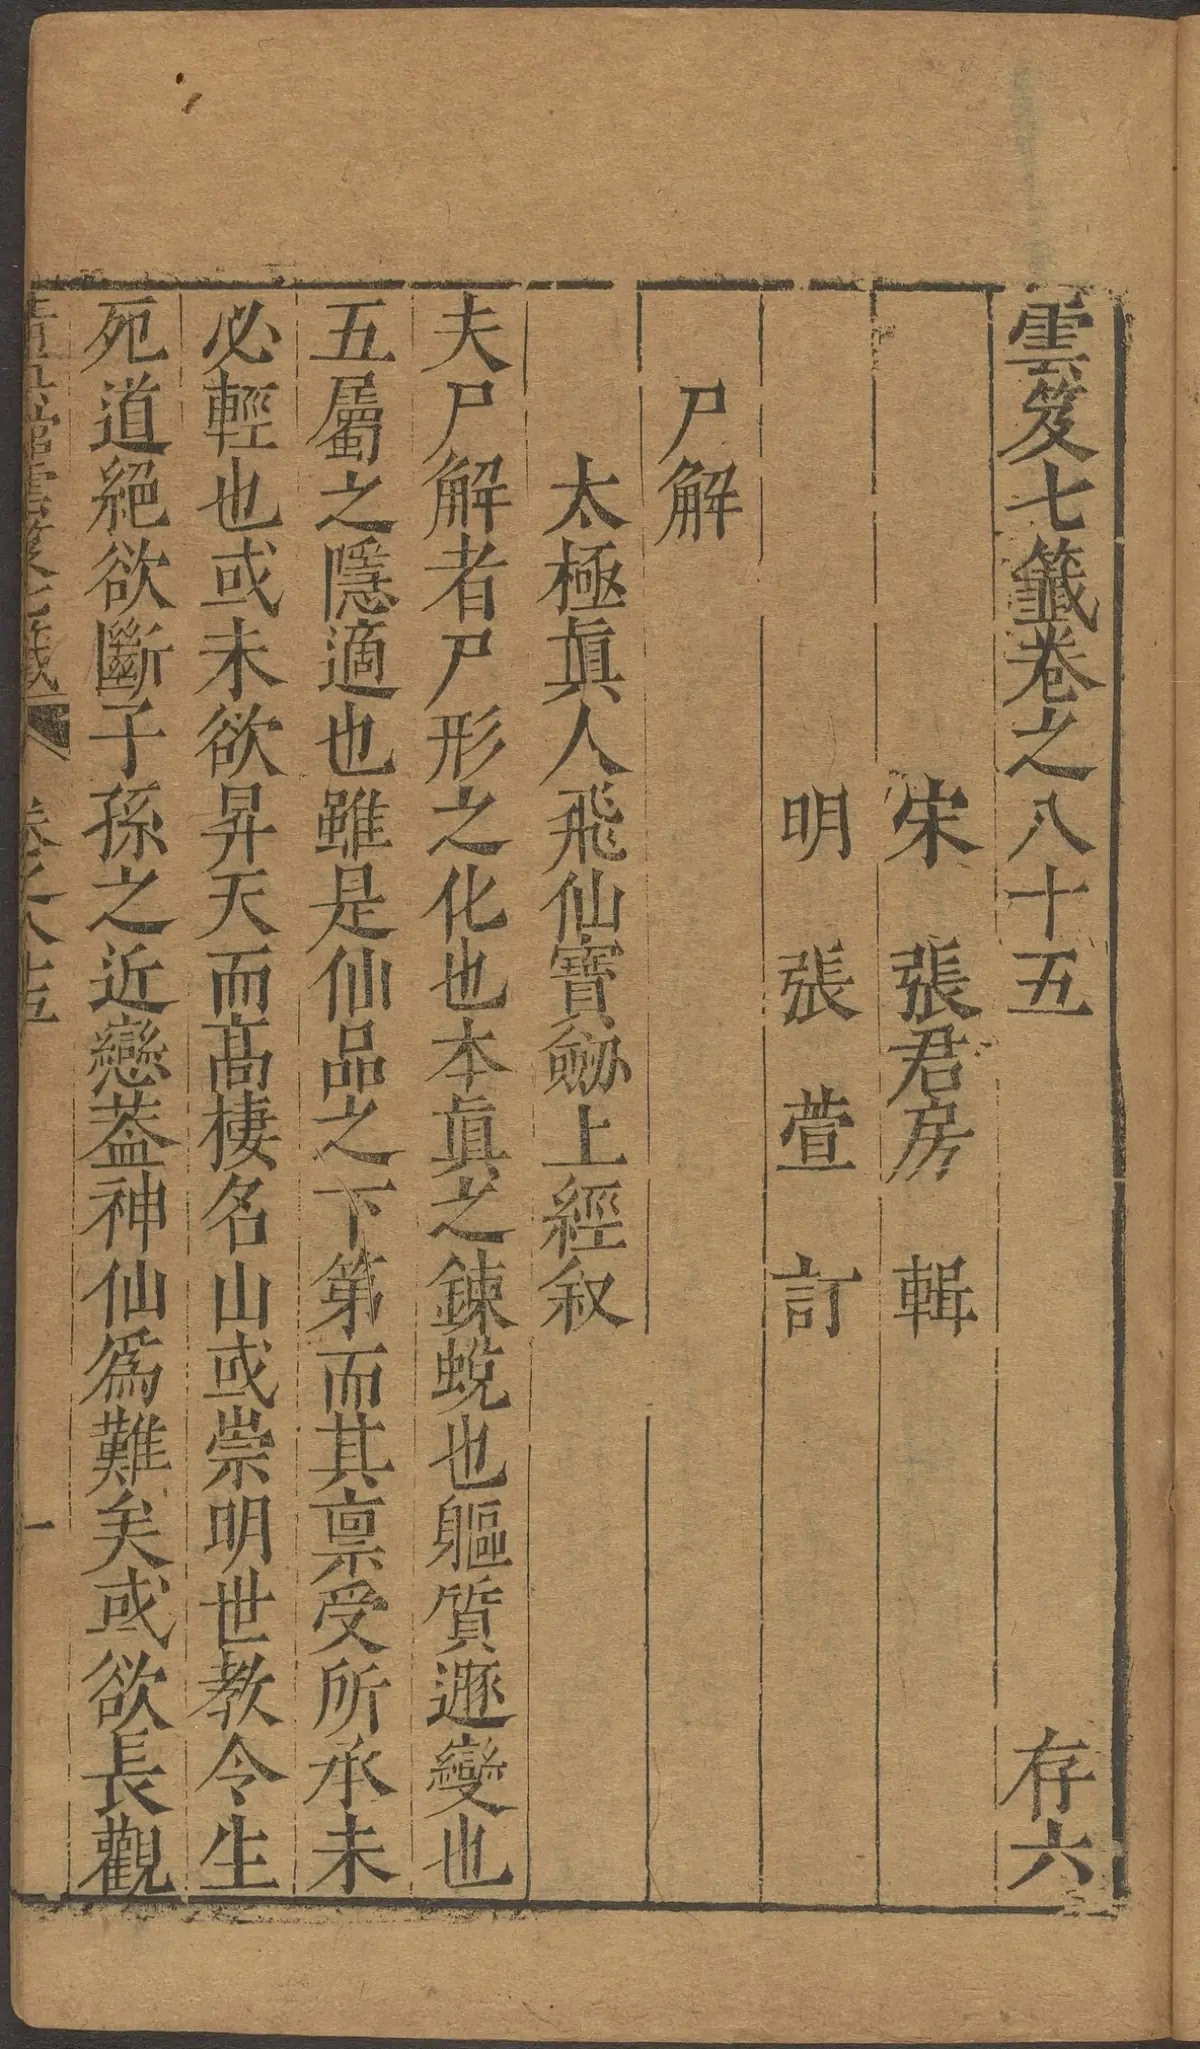 雲笈七籤卷之八十五 存六
宋 張君房 輯
明 張萱 訂
尸解
太極眞人飛仙寶劒上經叙
夫尸解者尸形之化也本眞之鍊蛻也軀質遯變也
五屬之隱適也雖是仙品之下第而其禀受所承未
必輕也或未欲昇天而髙棲名山或崇明世教令生
死道絕欲斷子孫之近戀葢神仙爲難矣或欲長觀
卷之八十五 一